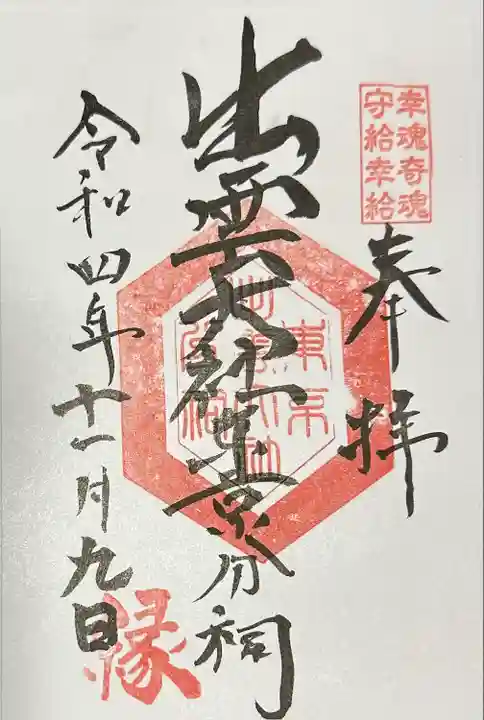 幸魂奇魂
守給幸給
奉拝
出雲大社東京分祠
東京
出雲大神
分祠
令和四年十一月九日
縁